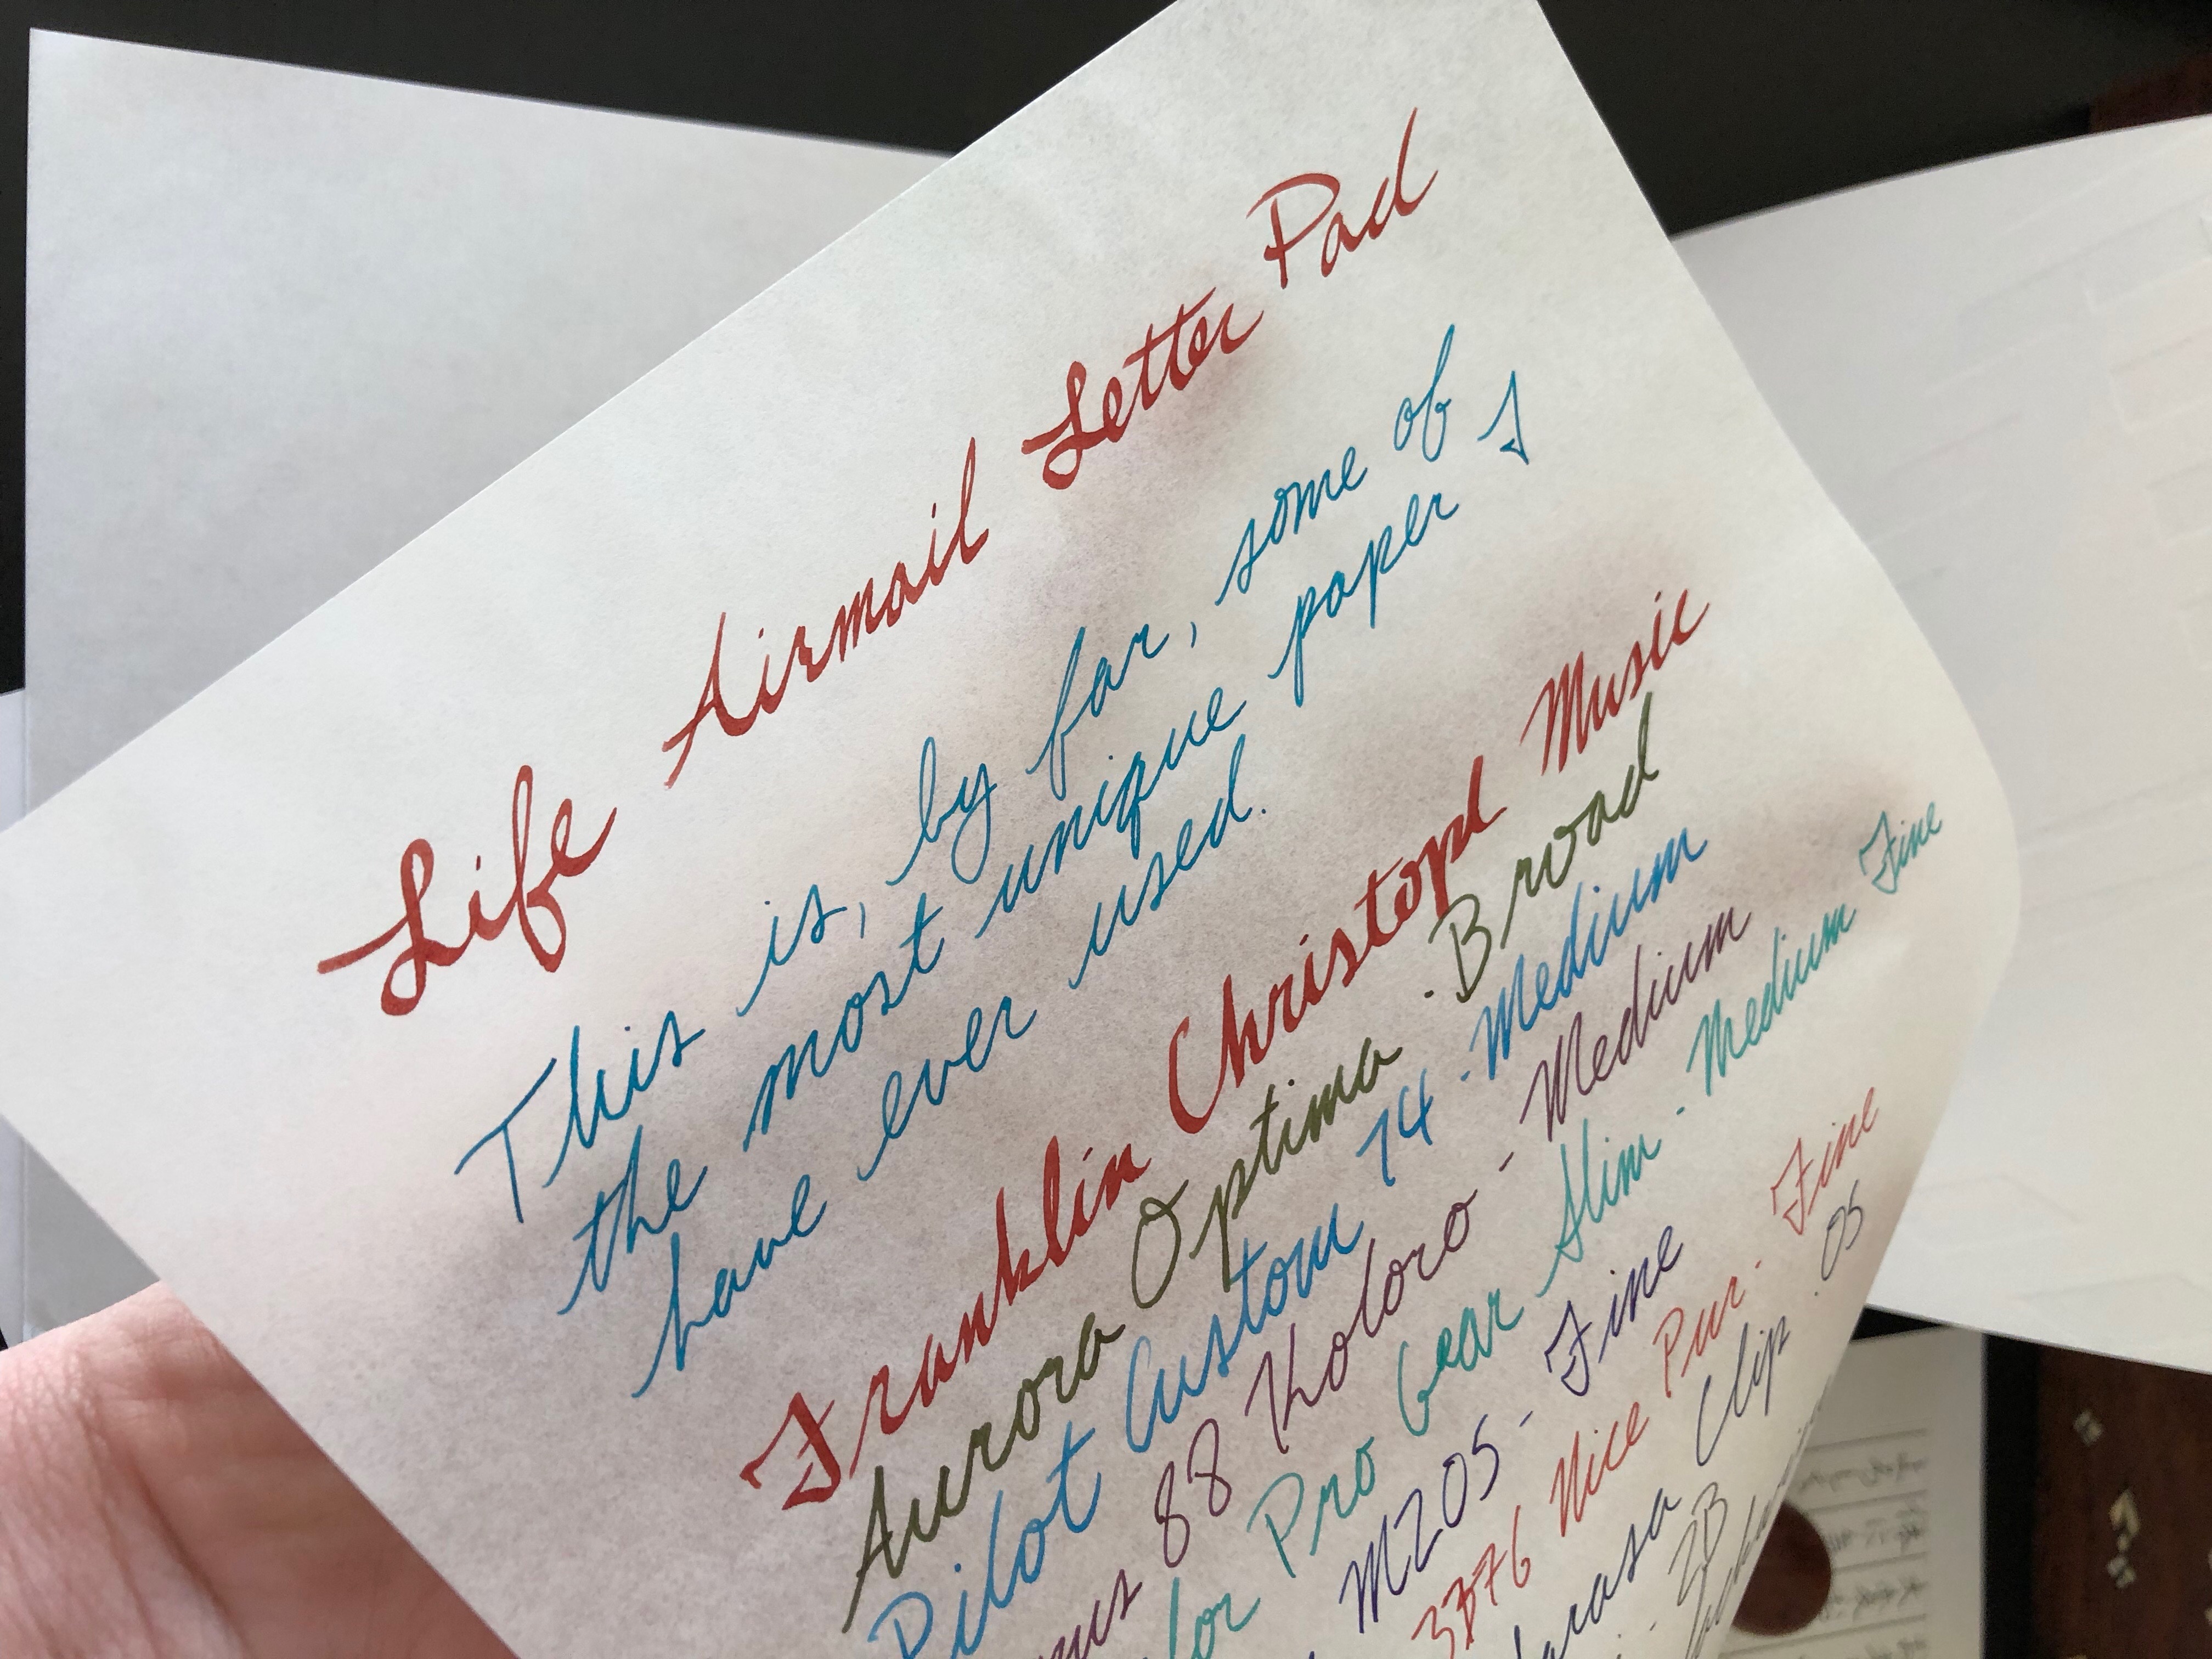 Life Airmail Letter Pad
This is, by far, some of
the most unique paper I
have ever used.
Franklin Christoph Music
Aurora Optima - Broad
Pilot Custom 74 - Medium
88 Koloro - Medium
Pro Gear Slim - Medium Fine
M205 - Fine
3776 Nice Pur - Fine
Clip .05